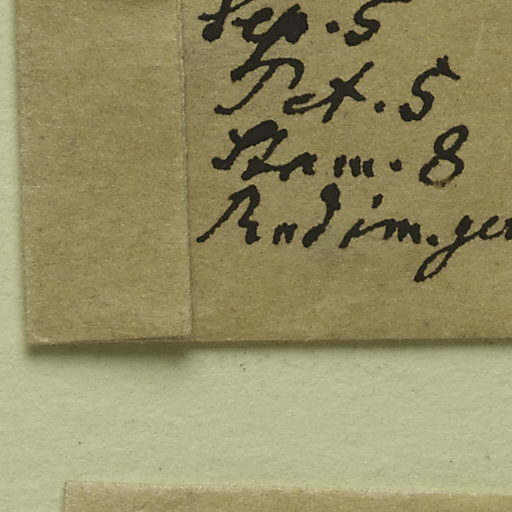 Sep. 5
Pet. 5
Stam. 8
Rudim. ger